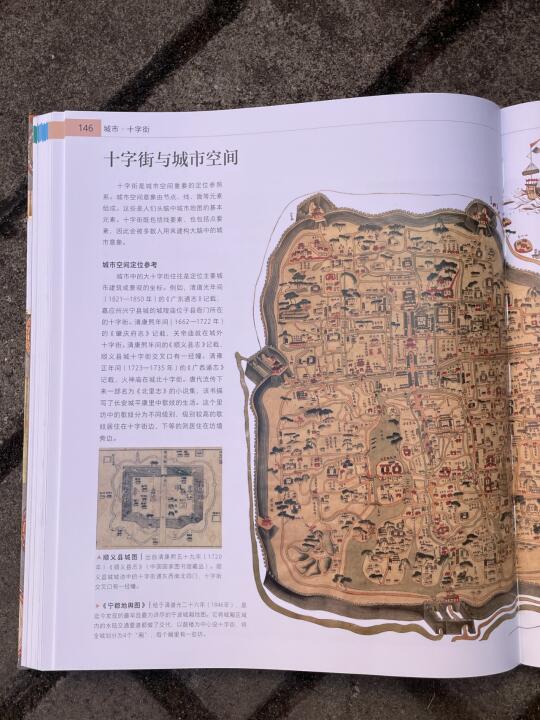 146
城市·十字街
十字街与城市空间
十字街是城市空间重要的定位参照
系。城市空间意象由节点、线、面等元素
组成。这些是人们头脑中城市地图的基本
元素。十字街既包括线要素，也包括点要
素，因此会被多数人用来建构大脑中的城
市意象。
城市空间定位参考
城市中的大十字街往往是定位主要城
市建筑或景观的坐标。例如，清道光年间
（1021—1850 年）的《广东通志》记载，
嘉应州兴宁县城的城隍庙位于县衙门所在
的十字街。清康熙年间（1662—1722 年）
的《肇庆府志》记载，关帝庙就在城外
十字街。清康熙年间的《顺义县志》记载，
顺义县城十字街交叉口有一经幢。清雍
正年间（1723—1735 年）的《广西通志》
记载，火神庙在城北十字街。唐代流传下
来一部名为《北里志》的小说集，该书描
写了长安城平康里中歌妓的生活。这个里
坊中的歌妓分为不同级别，级别较高的歌
妓居住在十字街边，下等的则居住在坊墙
旁边。
▲顺义县城图｜出自清康熙五十九年（1720
年）《顺义县志》（中国国家图书馆藏品）。顺
义县城城池中的十字街通东西南北四门，十字街
交叉口有一经幢。
▶《宁郡地舆图》｜绘于清道光二十六年（1846年），是
迄今发现的最早且最为详尽的宁波城厢地图。它将城厢区域
内的水陆交通要道都做了交代，以鼓楼为中心设十字街，将
全城划分为4个“厢”，每个厢里有一些坊。